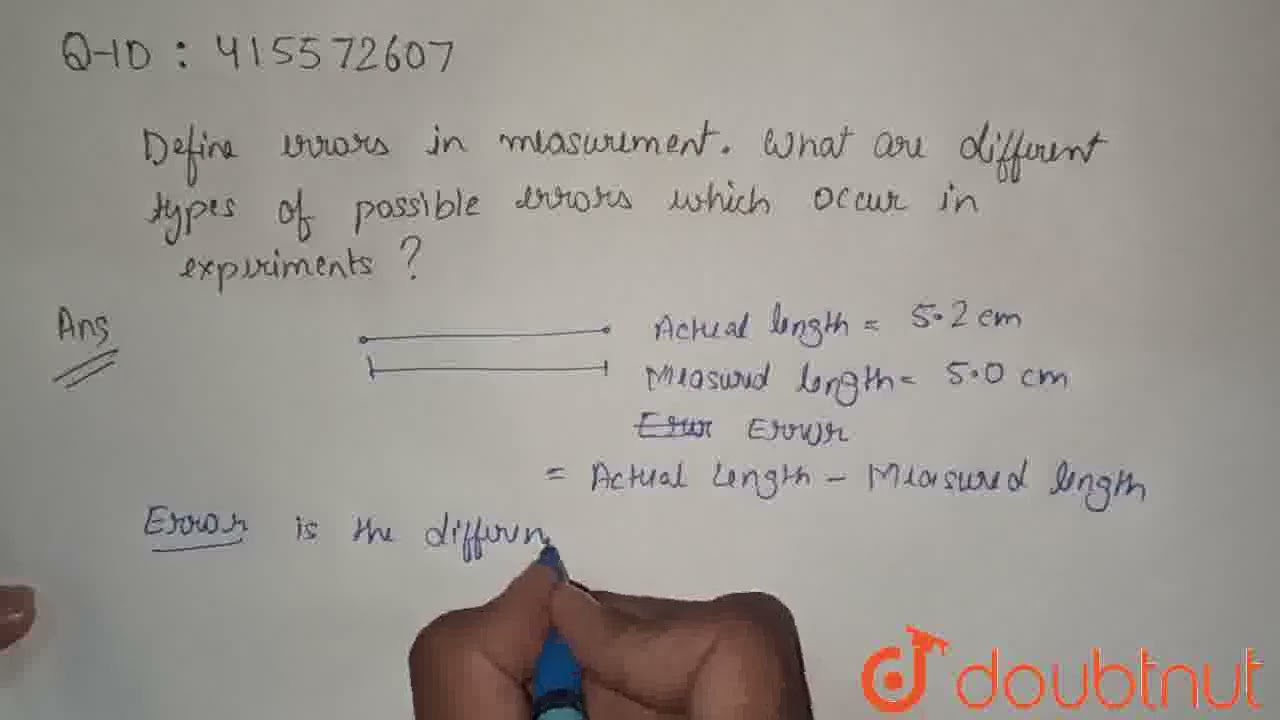 Q-ID : 415572607
Define errors in measurement. What are different
types of possible errors which occur in
experiments ?
Ans
Actual length = 5.2 cm
Measured length = 5.0 cm
Error
= Actual length - Measured length
Error is the differen
doubtnut